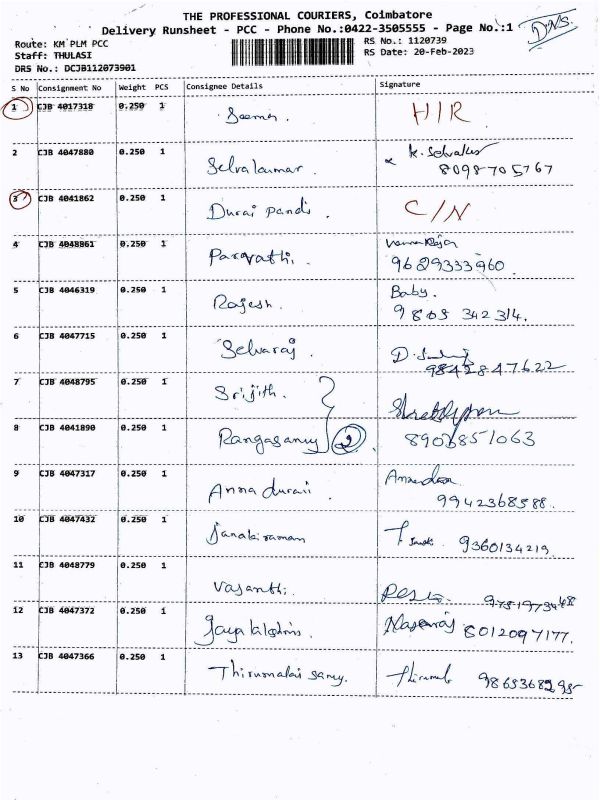 THE PROFESSIONAL COURIERS, Coimbatore
Delivery Runsheet - PCC - Phone No.:0422-3505555 - Page No.:1
DNS.
Route: KM PLM PCC
RS No.: 1120739
Staff: THULASI
RS Date: 20-Feb-2023
DRS No.: DCJB112073901
S No Consignment No Weight PCS Consignee Details Signature
1 CJB 4017318 0.250 1 H/R
2 CJB 4047880 0.250 1 Selvakumar K. Selvakumar
8098705767
3 CJB 4041862 0.250 1 Durai Pandi. C/N
4 CJB 4048861 0.250 1 Parvathi.
9629333960.
5 CJB 4046319 0.250 1 Rajesh. Baby.
9865 342314.
6 CJB 4047715 0.250 1 Selvaraj.
9842847622
7 CJB 4048795 0.250 1 Srijith.
8 CJB 4041890 0.250 1 Rangasamy 2 8906851063
9 CJB 4047317 0.250 1 Anna durai
9942368588.
10 CJB 4047432 0.250 1 Janakiraman 9360134219
11 CJB 4048779 0.250 1 Vasanthi.
12 CJB 4047372 0.250 1 8012097177.
13 CJB 4047366 0.250 1 Thirumalai samy.